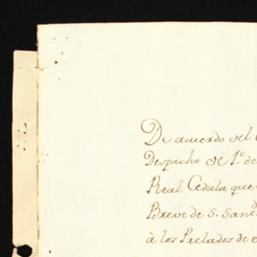 De acuerdo del
Despacho de 1.º de
Real Cedula que
Breve de S. Sant.d
à los Prelados de